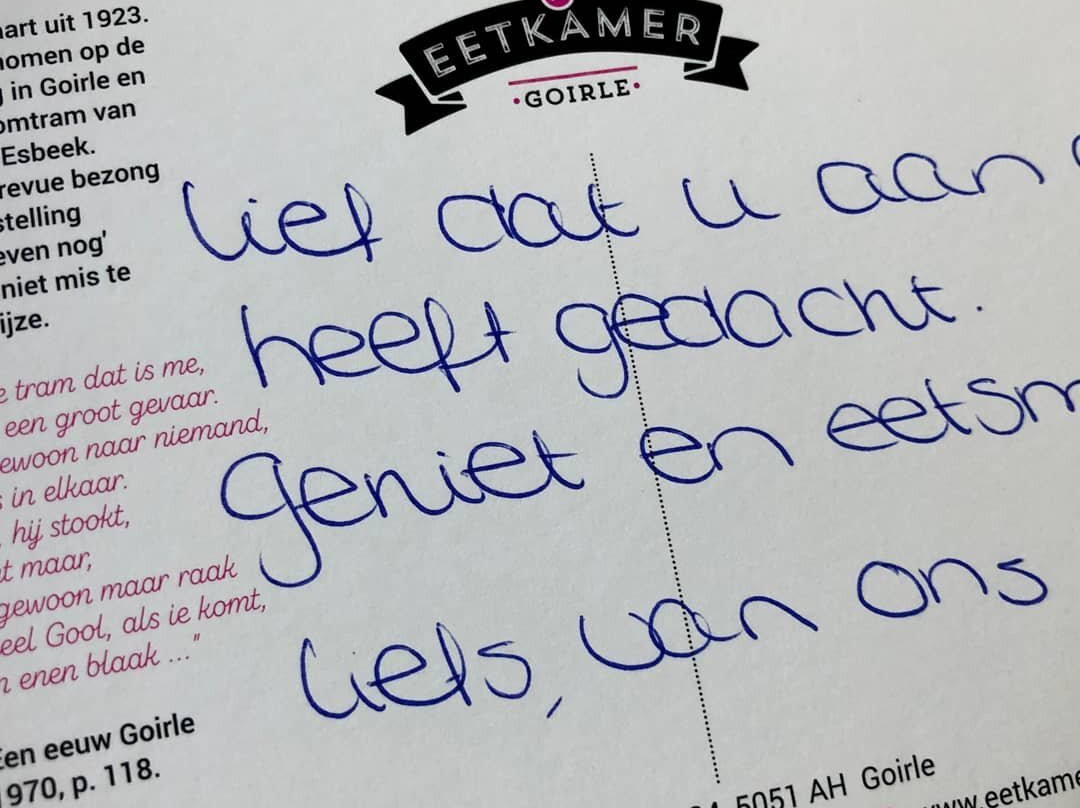 aart uit 1923.
nomen op de
g in Goirle en
omtram van
Esbeek.
revue bezong
stelling
even nog'
niet mis te
ijze.
e tram dat is me,
een groot gevaar.
ewoon naar niemand,
s in elkaar.
hij stookt,
t maar,
gewoon maar raak
eel Gool, als ie komt,
n enen blaak ..."
Een eeuw Goirle
1970, p. 118.
EETKAMER
·GOIRLE·
lief dat u aan
heeft gedacht.
geniet en eetsm
liefs, van ons
5051 AH Goirle
www.eetkame